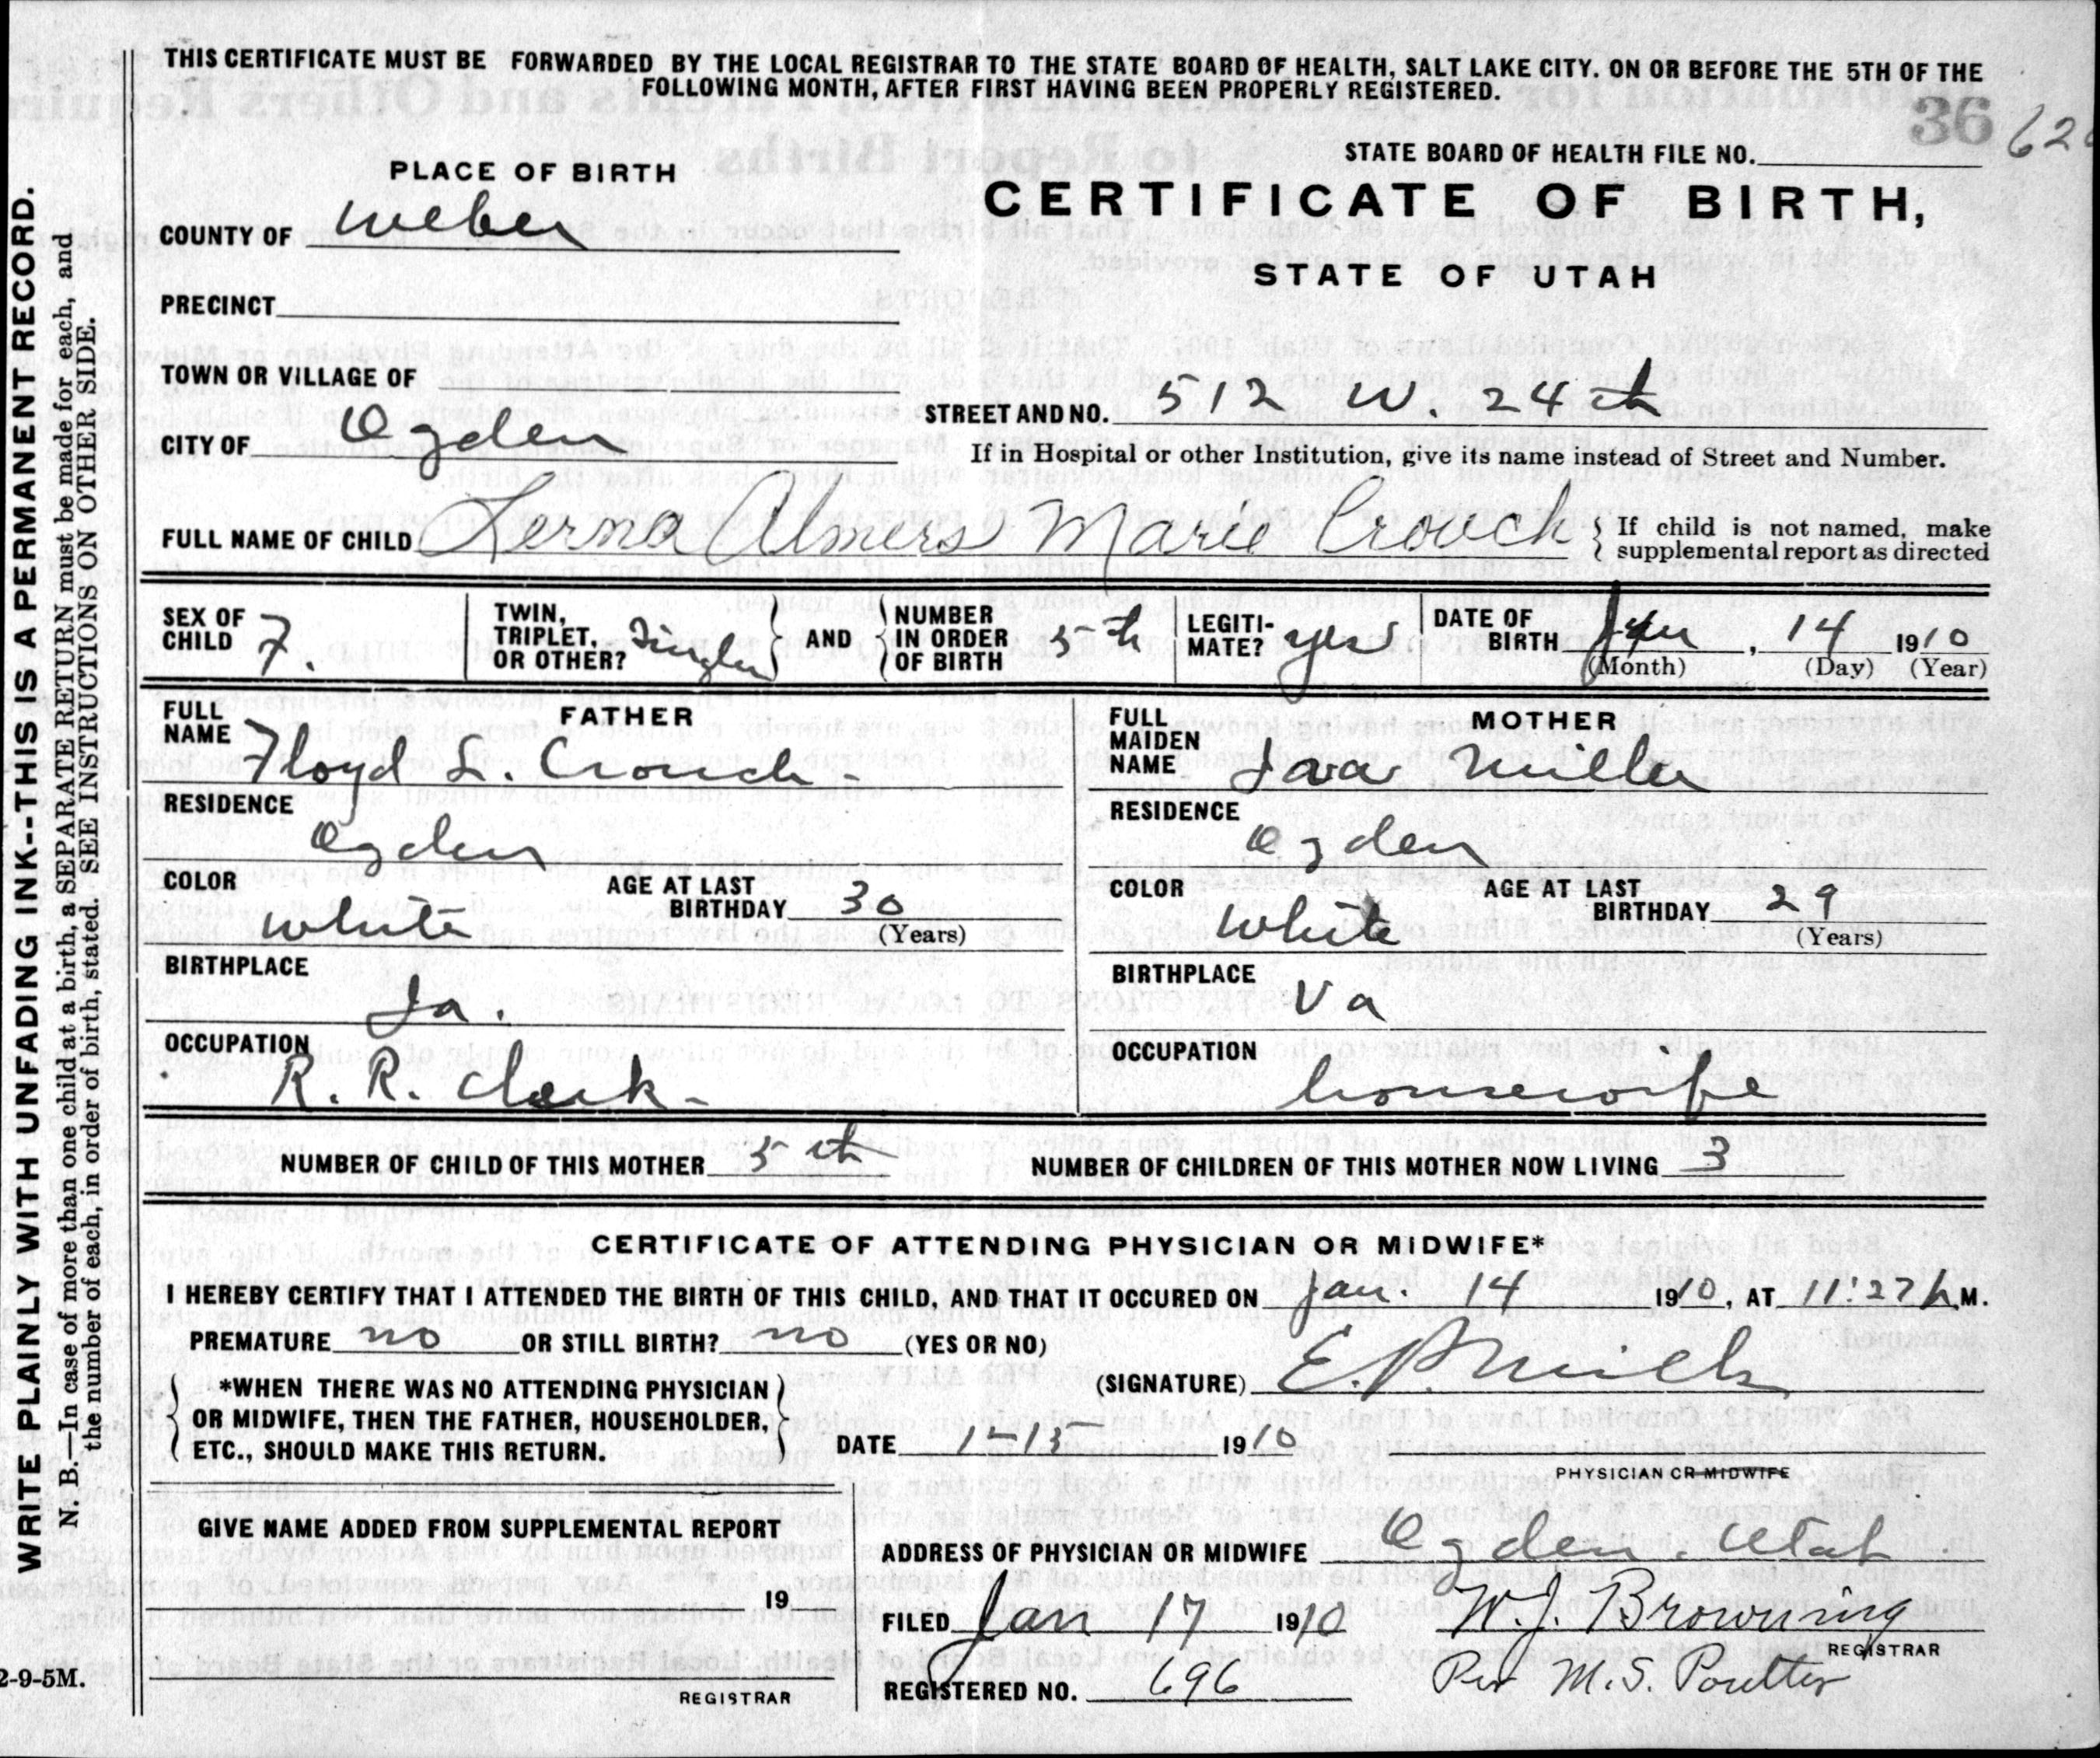 THIS CERTIFICATE MUST BE FORWARDED BY THE LOCAL REGISTRAR TO THE STATE BOARD OF HEALTH, SALT LAKE CITY. ON OR BEFORE THE 5TH OF THE
FOLLOWING MONTH, AFTER FIRST HAVING BEEN PROPERLY REGISTERED.
36
STATE BOARD OF HEALTH FILE NO.
PLACE OF BIRTH
CERTIFICATE OF BIRTH,
STATE OF UTAH
COUNTY OF Weber
PRECINCT
TOWN OR VILLAGE OF
STREET AND NO. 512 W. 24th
CITY OF Ogden
If in Hospital or other Institution, give its name instead of Street and Number.
FULL NAME OF CHILD Marie Crouch { If child is not named, make
supplemental report as directed
SEX OF CHILD F. TWIN, TRIPLET, OR OTHER? } AND { NUMBER IN ORDER OF BIRTH 5th LEGITI-MATE? yes DATE OF BIRTH Jan, 14 1910
(Month) (Day) (Year)
FATHER
FULL NAME Floyd L. Crouch-
RESIDENCE
Ogden
COLOR
white
AGE AT LAST BIRTHDAY 30
(Years)
BIRTHPLACE
Ia.
OCCUPATION
R. R. Clerk-
MOTHER
FULL MAIDEN NAME Miller
RESIDENCE
Ogden
COLOR
White
AGE AT LAST BIRTHDAY 29
(Years)
BIRTHPLACE
Va
OCCUPATION
housewife
NUMBER OF CHILD OF THIS MOTHER 5th NUMBER OF CHILDREN OF THIS MOTHER NOW LIVING 3
CERTIFICATE OF ATTENDING PHYSICIAN OR MIDWIFE*
I HEREBY CERTIFY THAT I ATTENDED THE BIRTH OF THIS CHILD, AND THAT IT OCCURED ON Jan. 14 1910, AT 11:27 M.
PREMATURE no OR STILL BIRTH? no (YES OR NO)
(SIGNATURE) E. P. Mills
{ *WHEN THERE WAS NO ATTENDING PHYSICIAN
OR MIDWIFE, THEN THE FATHER, HOUSEHOLDER,
ETC., SHOULD MAKE THIS RETURN. }
DATE 1-15- 1910
PHYSICIAN OR MIDWIFE
GIVE NAME ADDED FROM SUPPLEMENTAL REPORT
19
REGISTRAR
ADDRESS OF PHYSICIAN OR MIDWIFE Ogden. Utah
FILED Jan 17 1910 W. J. Browning
REGISTRAR
REGISTERED NO. 696 Per M. S. Poulter
WRITE PLAINLY WITH UNFADING INK--THIS IS A PERMANENT RECORD.
N. B.—In case of more than one child at a birth, a SEPARATE RETURN must be made for each, and
the number of each, in order of birth, stated. SEE INSTRUCTIONS ON OTHER SIDE.
2-9-5M.